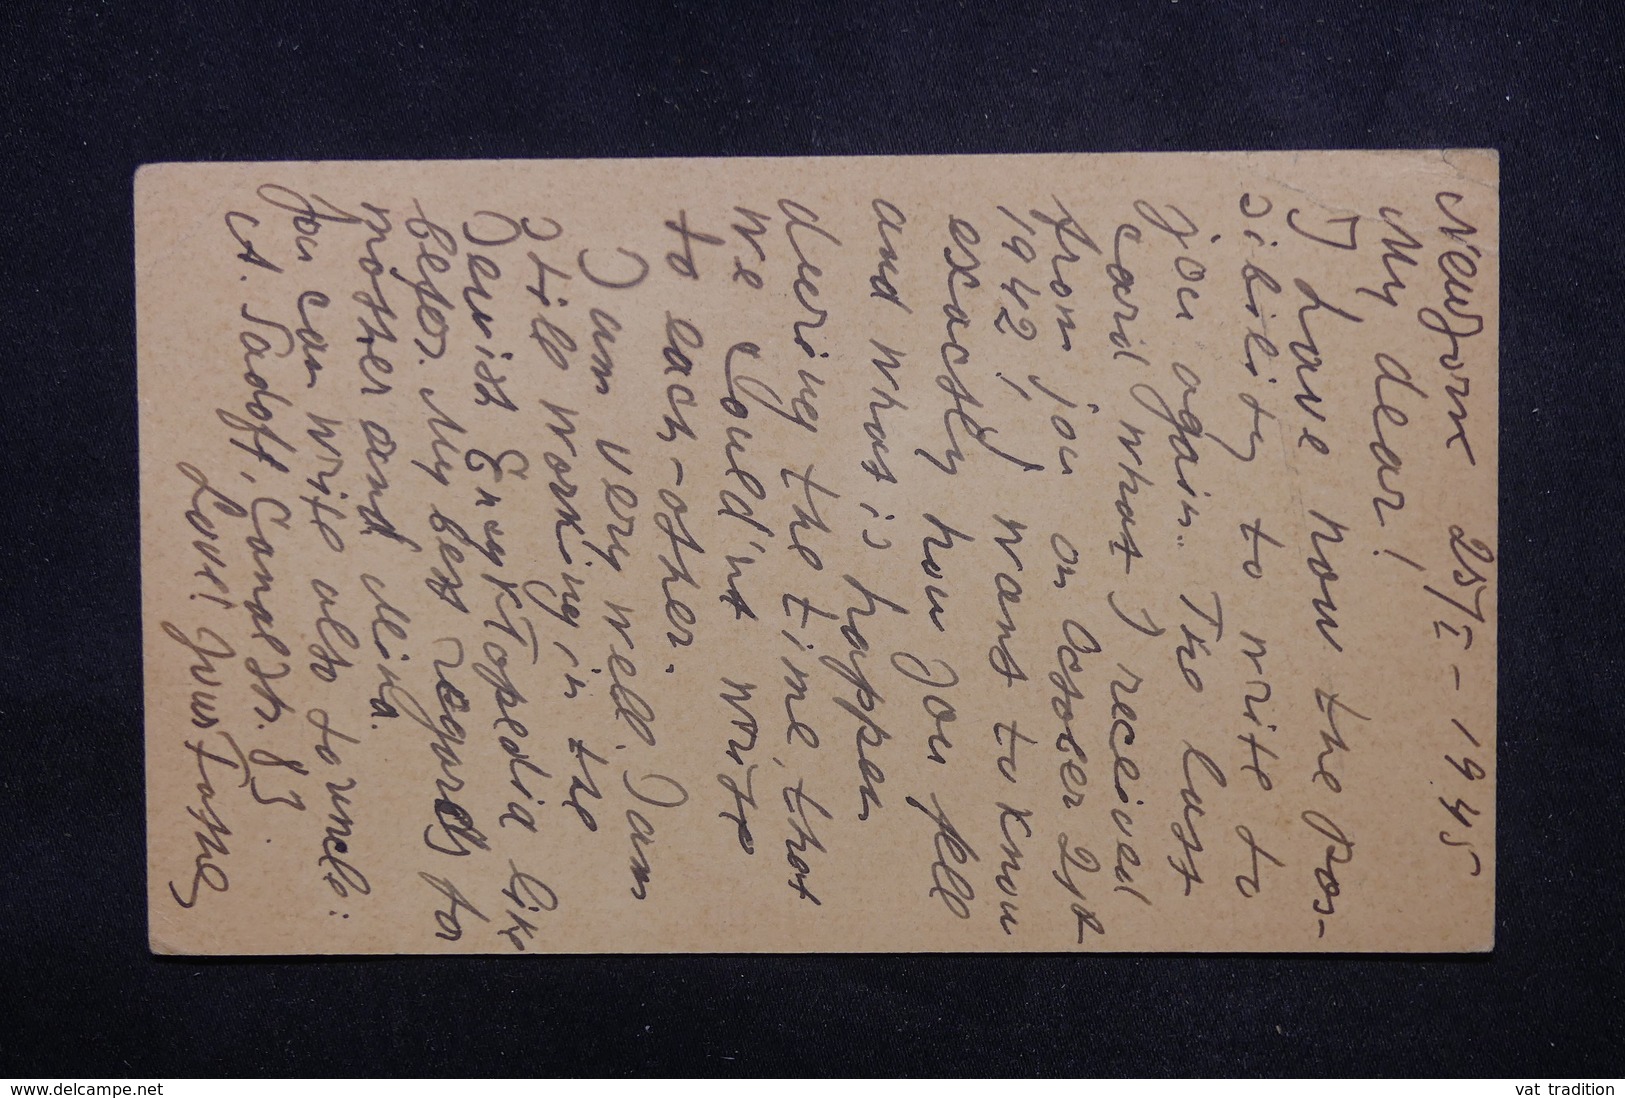 NewYork 25/I - 1945
My dear!
I have now the pos-
sibility to write to
you again. The last
card what I received
from you on October 21st
1942! I want to know
exactly how you fell
and what is happen
during the time, that
we could'nt write
to each-other.
I am very well. I am
still working in the
Jewish Enzyklopedia like
befor. My best regards for
mother and
you can write also to uncle:
A. Sadoff, Canal str. 83
Love! Your
www.delcampe.net
vat tradition